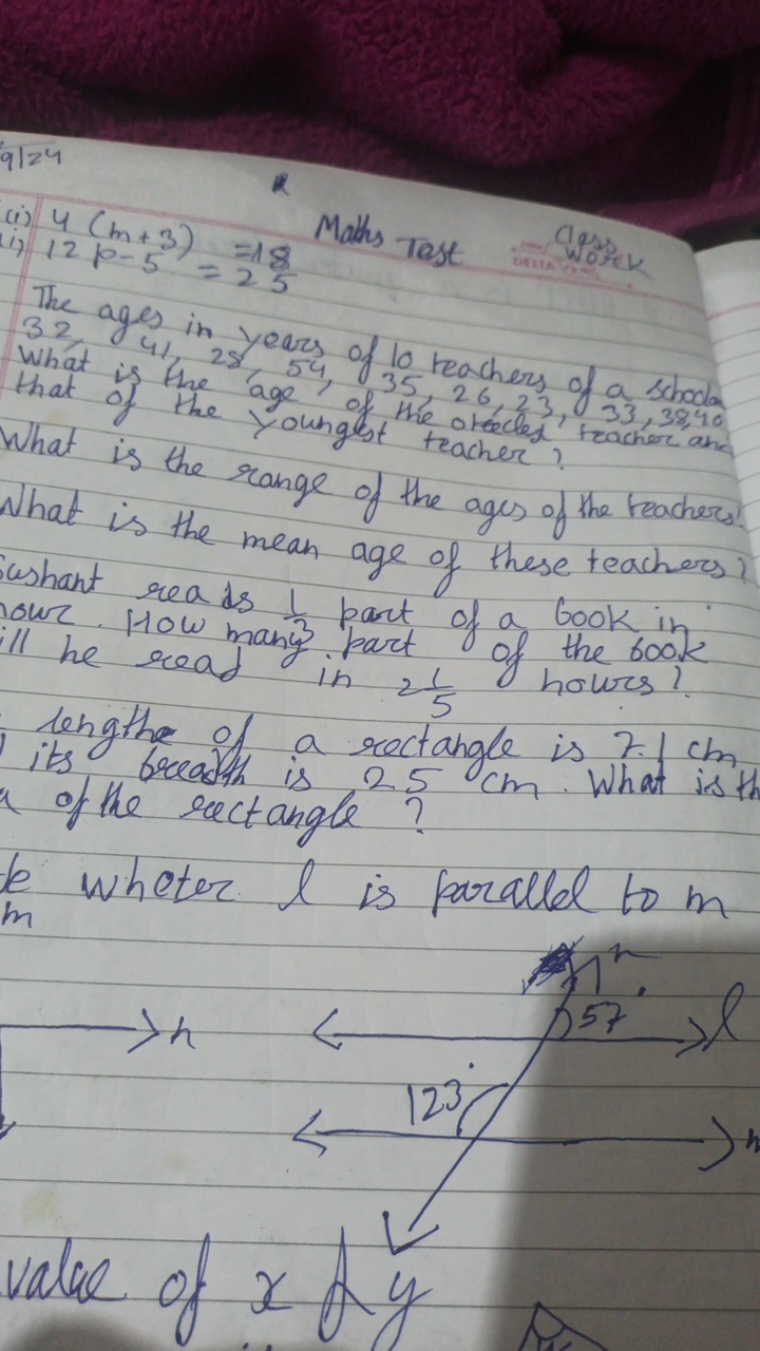 9/24
Maths Test
Class Work
DELTA
(i) 4 (m+3) =18
i) 12 p-5 = 25
The ages in years of 10 teachers of a school
32, 41, 28, 54, 35, 26, 23, 33, 38, 40
What is the age of the teacher and
that of the youngest teacher?
What is the range of the ages of the teachers?
What is the mean age of these teachers?
Sushant reads 1/3 part of a book in
hour. How many part of the book
ill he read in 2 1/5 hours?
length of a rectangle is 7.1 cm
its breadth is 2.5 cm. What is th
a of the rectangle?
de wheter l is parallel to m
m
n
57° l
n
123°
m
value of x & y